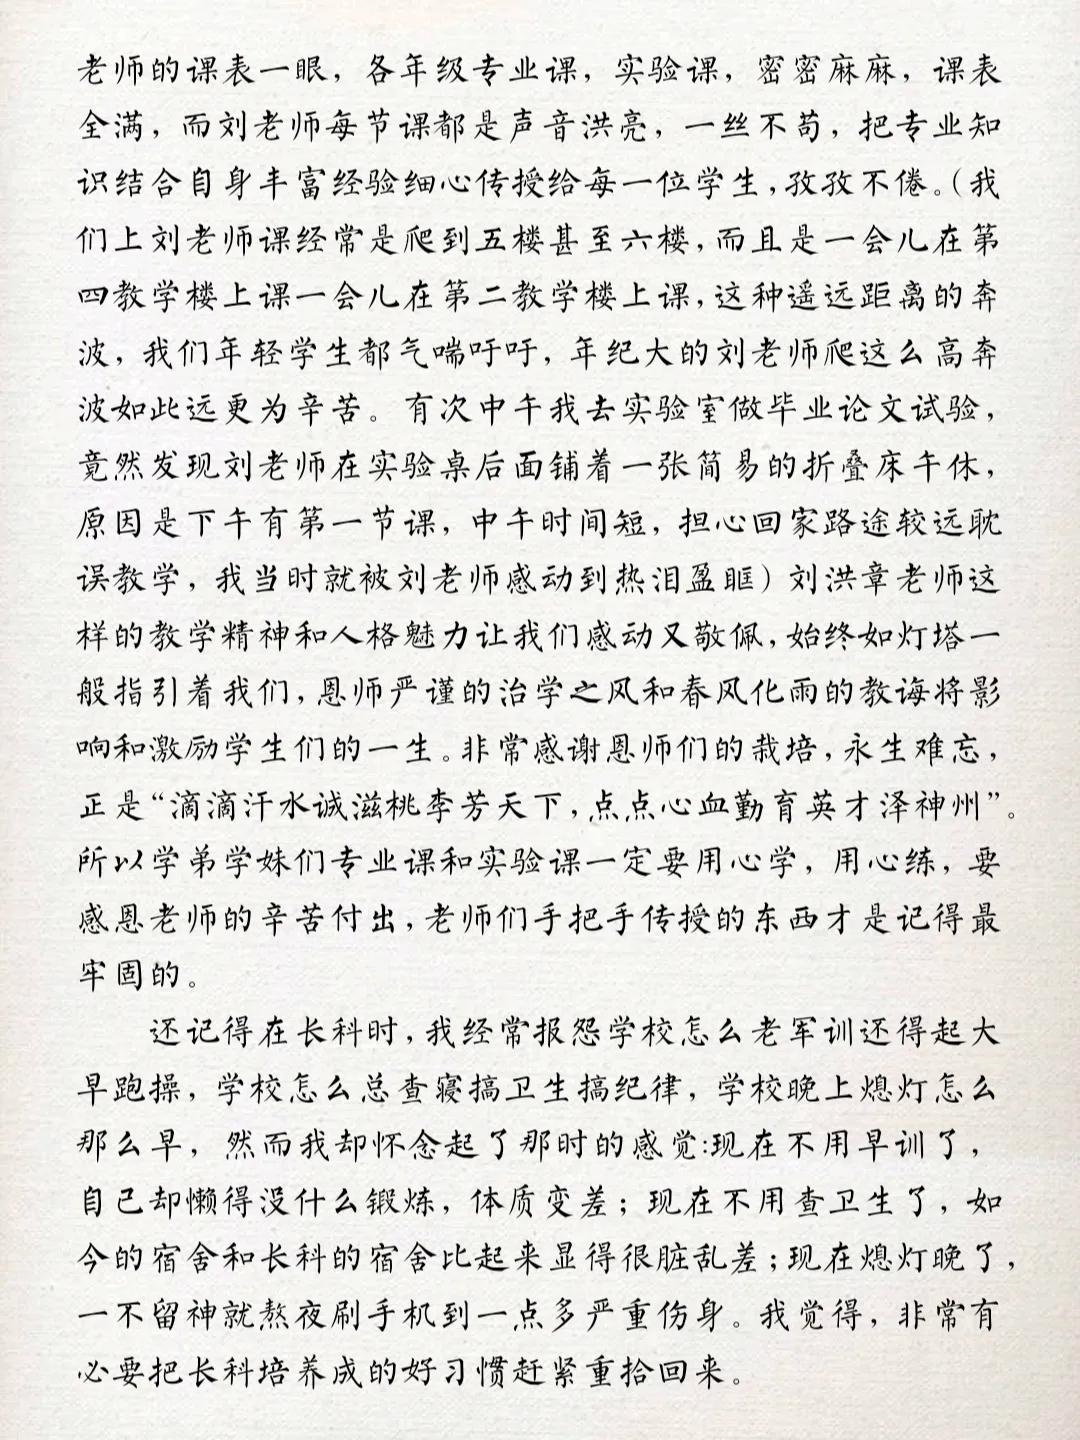 老师的课表一眼，各年级专业课，实验课，密密麻麻，课表
全满，而刘老师每节课都是声音洪亮，一丝不苟，把专业知
识结合自身丰富经验细心传授给每一位学生，孜孜不倦。（我
们上刘老师课经常是爬到五楼甚至六楼，而且是一会儿在第
四教学楼上课一会儿在第二教学楼上课，这种遥远距离的奔
波，我们年轻学生都气喘吁吁，年纪大的刘老师爬这么高奔
波如此远更为辛苦。有次中午我去实验室做毕业论文试验，
竟然发现刘老师在实验桌后面铺着一张简易的折叠床午休，
原因是下午有第一节课，中午时间短，担心回家路途较远耽
误教学，我当时就被刘老师感动到热泪盈眶）刘洪章老师这
样的教学精神和人格魅力让我们感动又敬佩，始终如灯塔一
般指引着我们，恩师严谨的治学之风和春风化雨的教诲将影
响和激励学生们的一生。非常感谢恩师们的栽培，永生难忘，
正是“滴滴汗水诚滋桃李芳天下，点点心血勤育英才泽神州”。
所以学弟学妹们专业课和实验课一定要用心学，用心练，要
感恩老师的辛苦付出，老师们手把手传授的东西才是记得最
牢固的。
还记得在长科时，我经常报怨学校怎么老军训还得起大
早跑操，学校怎么总查寝搞卫生搞纪律，学校晚上熄灯怎么
那么早，然而我却怀念起了那时的感觉:现在不用早训了，
自己却懒得没什么锻炼，体质变差；现在不用查卫生了，如
今的宿舍和长科的宿舍比起来显得很脏乱差；现在熄灯晚了，
一不留神就熬夜刷手机到一点多严重伤身。我觉得，非常有
必要把长科培养成的好习惯赶紧重拾回来。